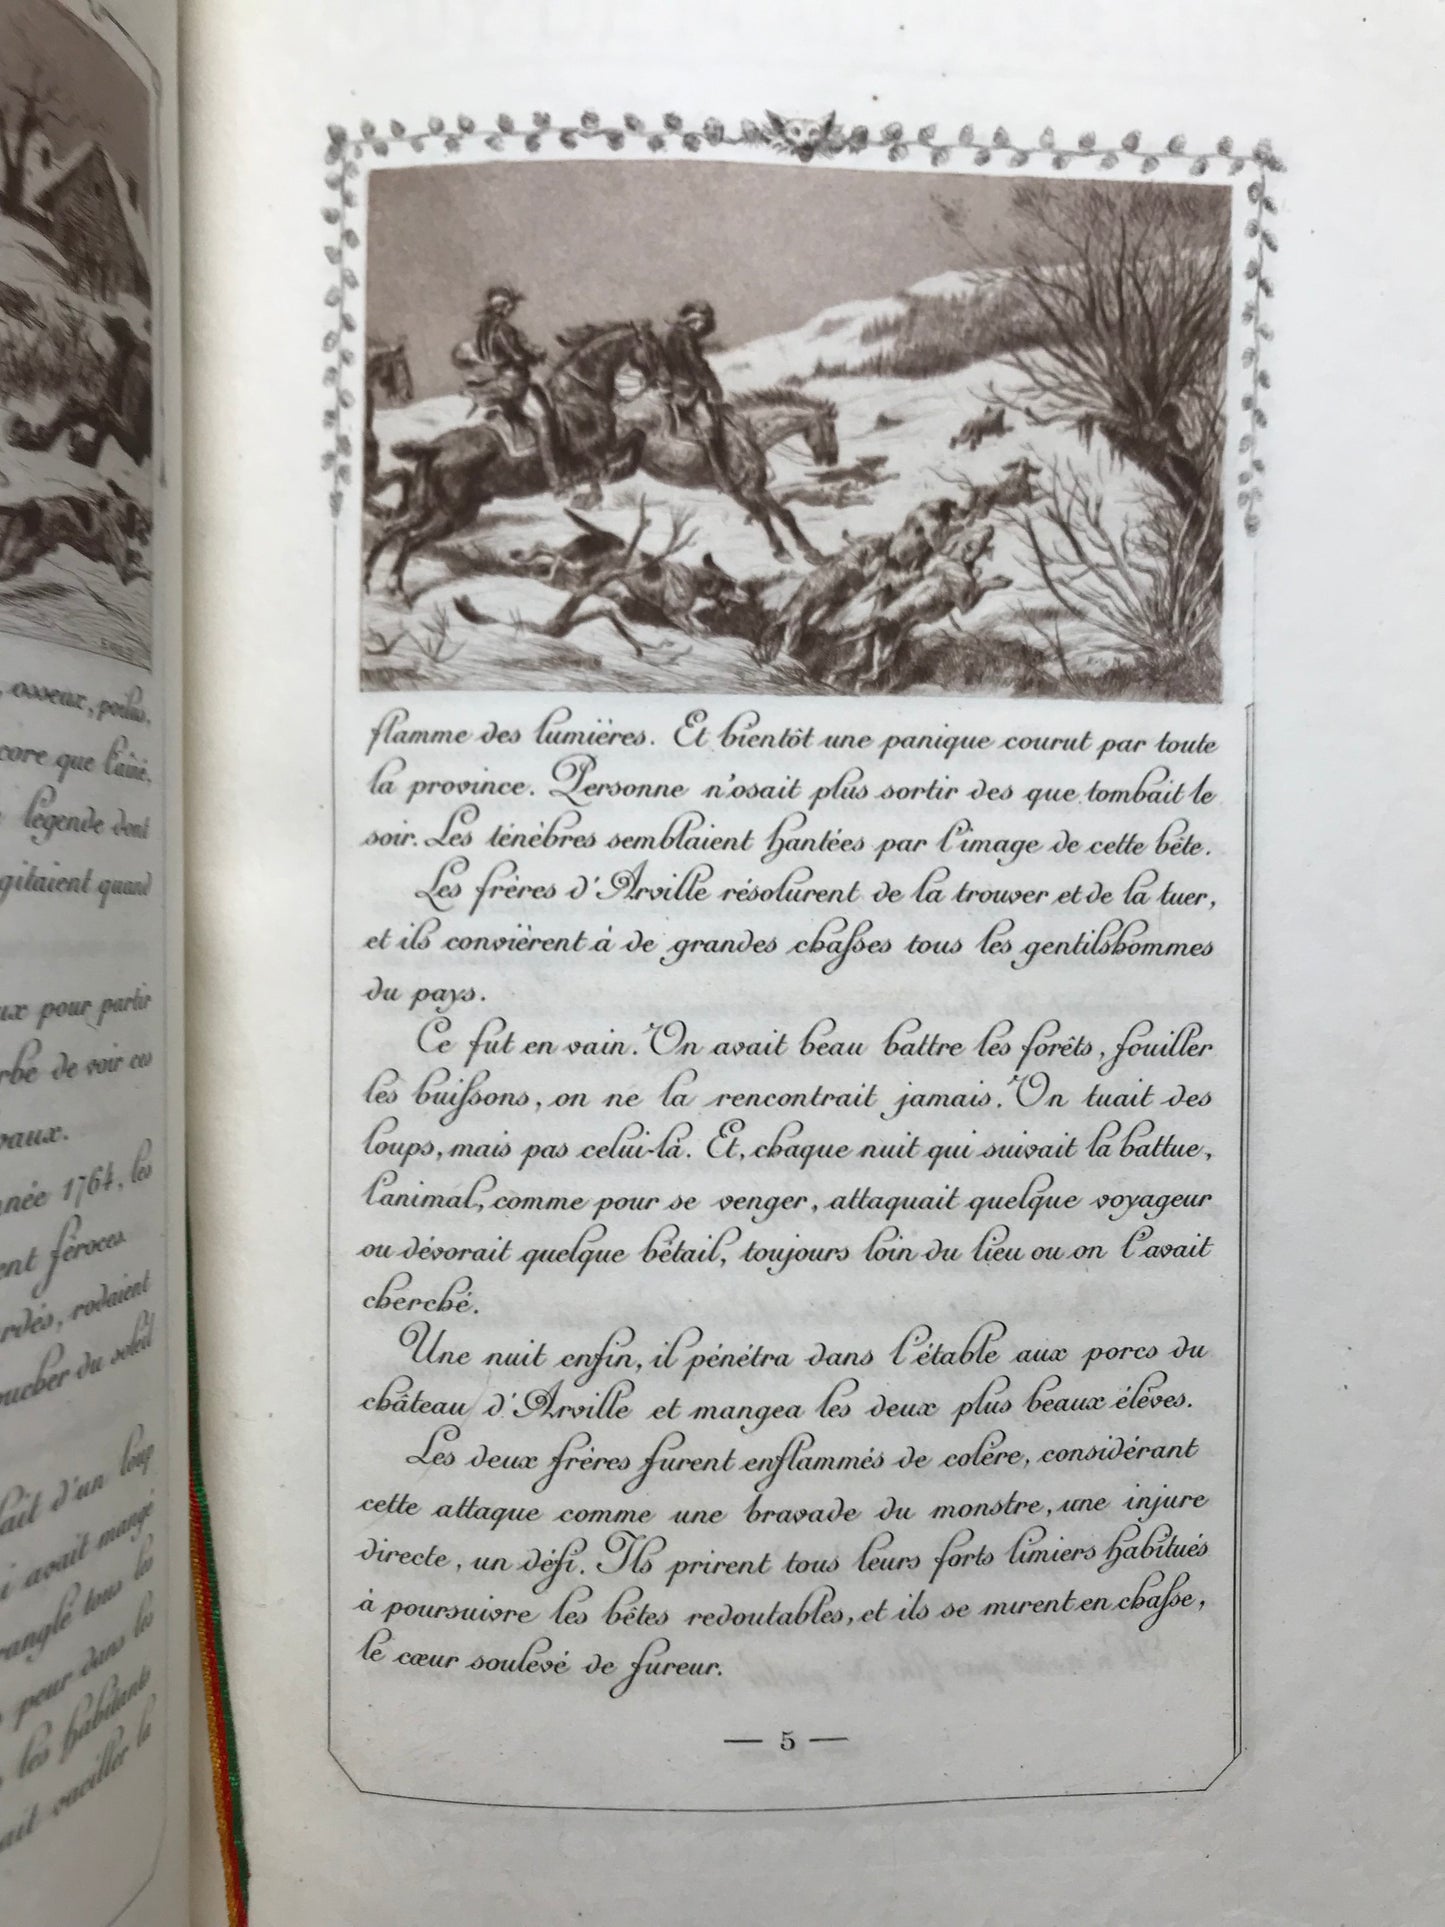 osseux, poilus,
core que l'aîné,
légende dont
gitaient quand
ux pour partir
rbe de voir ces
vaux.
nnée 1764, les
ent féroces
rdés, rodaient
oucher du soleil
lait d'un loup
i avait mangé
ranglé tous les
peur dans les
les habitants
ait vaciller la
flamme des lumières. Et bientôt une panique courut par toute
la province. Personne n'osait plus sortir des que tombait le
soir. Les ténèbres semblaient hantées par l'image de cette bête.
Les frères d'Arville résolurent de la trouver et de la tuer,
et ils convièrent à de grandes chasses tous les gentilshommes
du pays.
Ce fut en vain. On avait beau battre les forêts, fouiller
les buissons, on ne la rencontrait jamais. On tuait des
loups, mais pas celui-là. Et, chaque nuit qui suivait la battue,
l'animal, comme pour se venger, attaquait quelque voyageur
ou dévorait quelque bétail, toujours loin du lieu ou on l'avait
cherché.
Une nuit enfin, il pénétra dans l'étable aux porcs du
château d'Arville et mangea les deux plus beaux élèves.
Les deux frères furent enflammés de colère, considérant
cette attaque comme une bravade du monstre, une injure
directe, un défi. Ils prirent tous leurs forts limiers habitués
à poursuivre les bêtes redoutables, et ils se mirent en chasse,
le cœur soulevé de fureur.
— 5 —